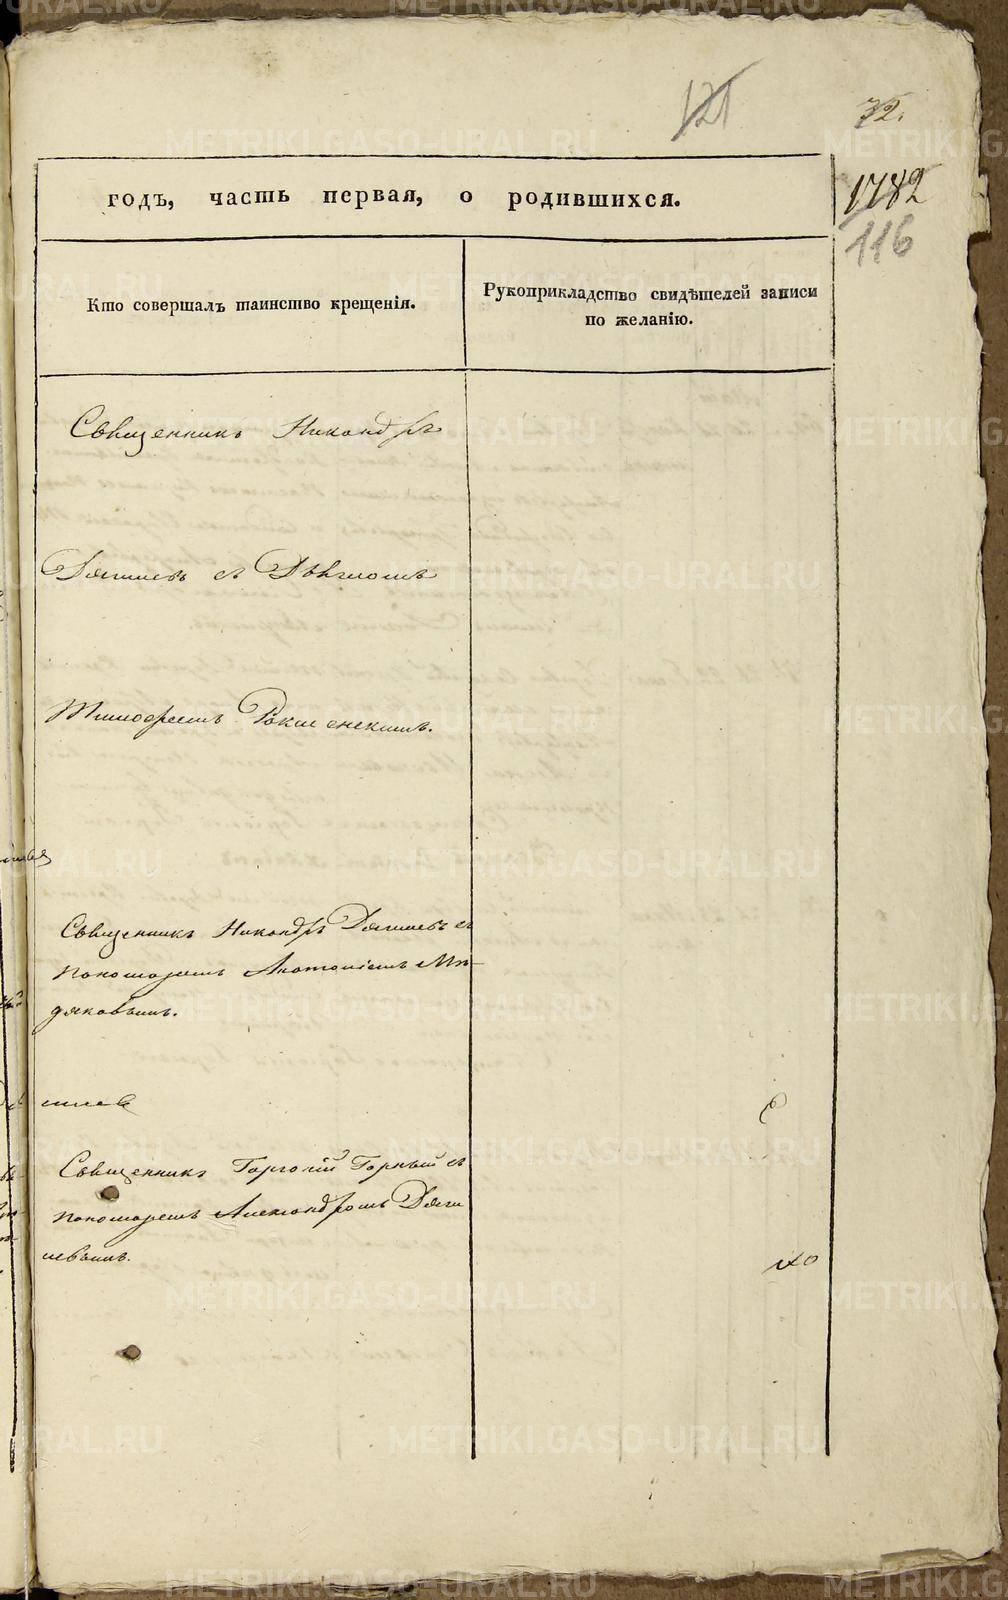 121
72.
1782
116
годъ, часть первая, о родившихся.
Кто совершалъ таинство крещенія.
Рукоприкладство свидѣтелей записи
по желанію.
Священникъ Никандръ
Дягилевъ съ Дьякономъ
Священникъ Никандръ Дягилевъ съ
пономаремъ
дяковымъ.
Священникъ Горный съ
пономаремъ Александромъ Дяги
левымъ.
METRIKI.GASO-URAL.RU